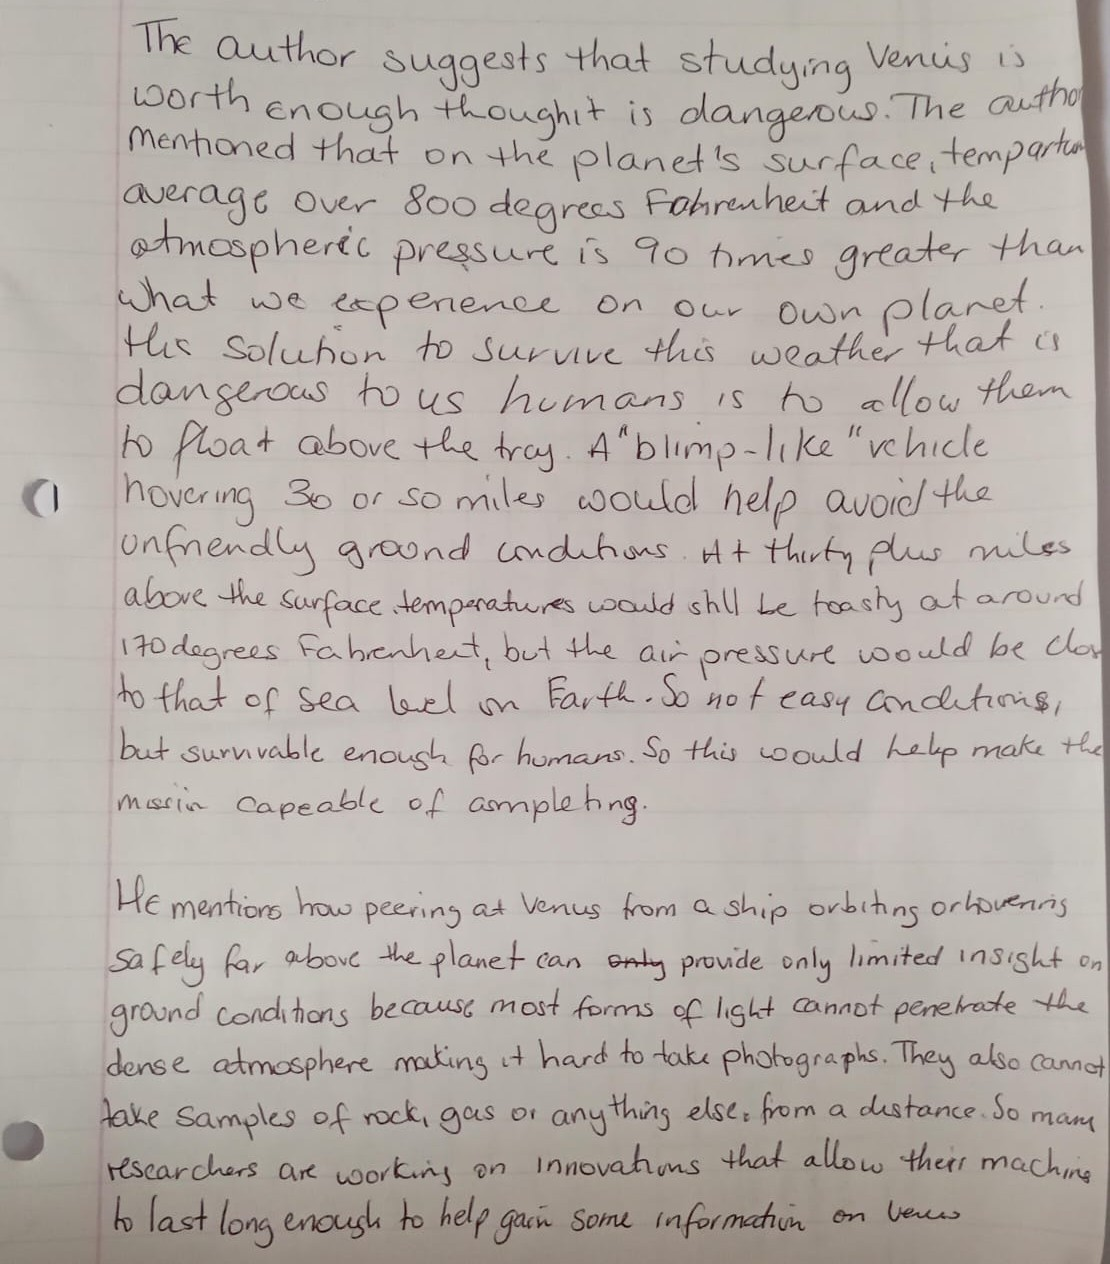 The author suggests that studying Venus is
worth enough thoughit is dangerous. The autho
mentioned that on the planet's surface, tempartu
average over 800 degrees Fahrenheit and the
atmospheric pressure is 90 times greater than
what we experience on our own planet.
His solution to survive this weather that is
dangerous to us humans is to allow them
to float above the fray. A "blimp-like" vehicle
hovering 30 or so miles would help avoid the
unfriendly ground conditions. At thirty plus miles
above the surface, temperatures would still be toasty at around
170 degrees Fahrenheit, but the air pressure would be clos
to that of sea level on Earth. So not easy conditions,
but survivable enough for humans. So this would help make the
missin capeable of completing.
He mentions how peering at Venus from a ship orbiting or hovering
safely far above the planet can only provide only limited insight on
ground conditions because most forms of light cannot penetrate the
dense atmosphere making it hard to take photographs. They also cannot
take samples of rock, gas or anything else, from a distance. So many
researchers are working on innovations that allow their machine
to last long enough to help gain some information on Venus